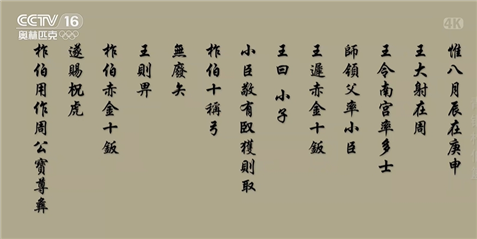 CCTV 16
奥林匹克
4K
惟八月辰在庚申
王大射在周
王令南宮率多士
師領父率小臣
王遲赤金十鈑
王曰 小子
小臣敬有臤獲則取
柞伯十稱弓
無廢矢
王則畀
柞伯赤金十鈑
遂賜柷虎
柞伯用作周公寶尊彝